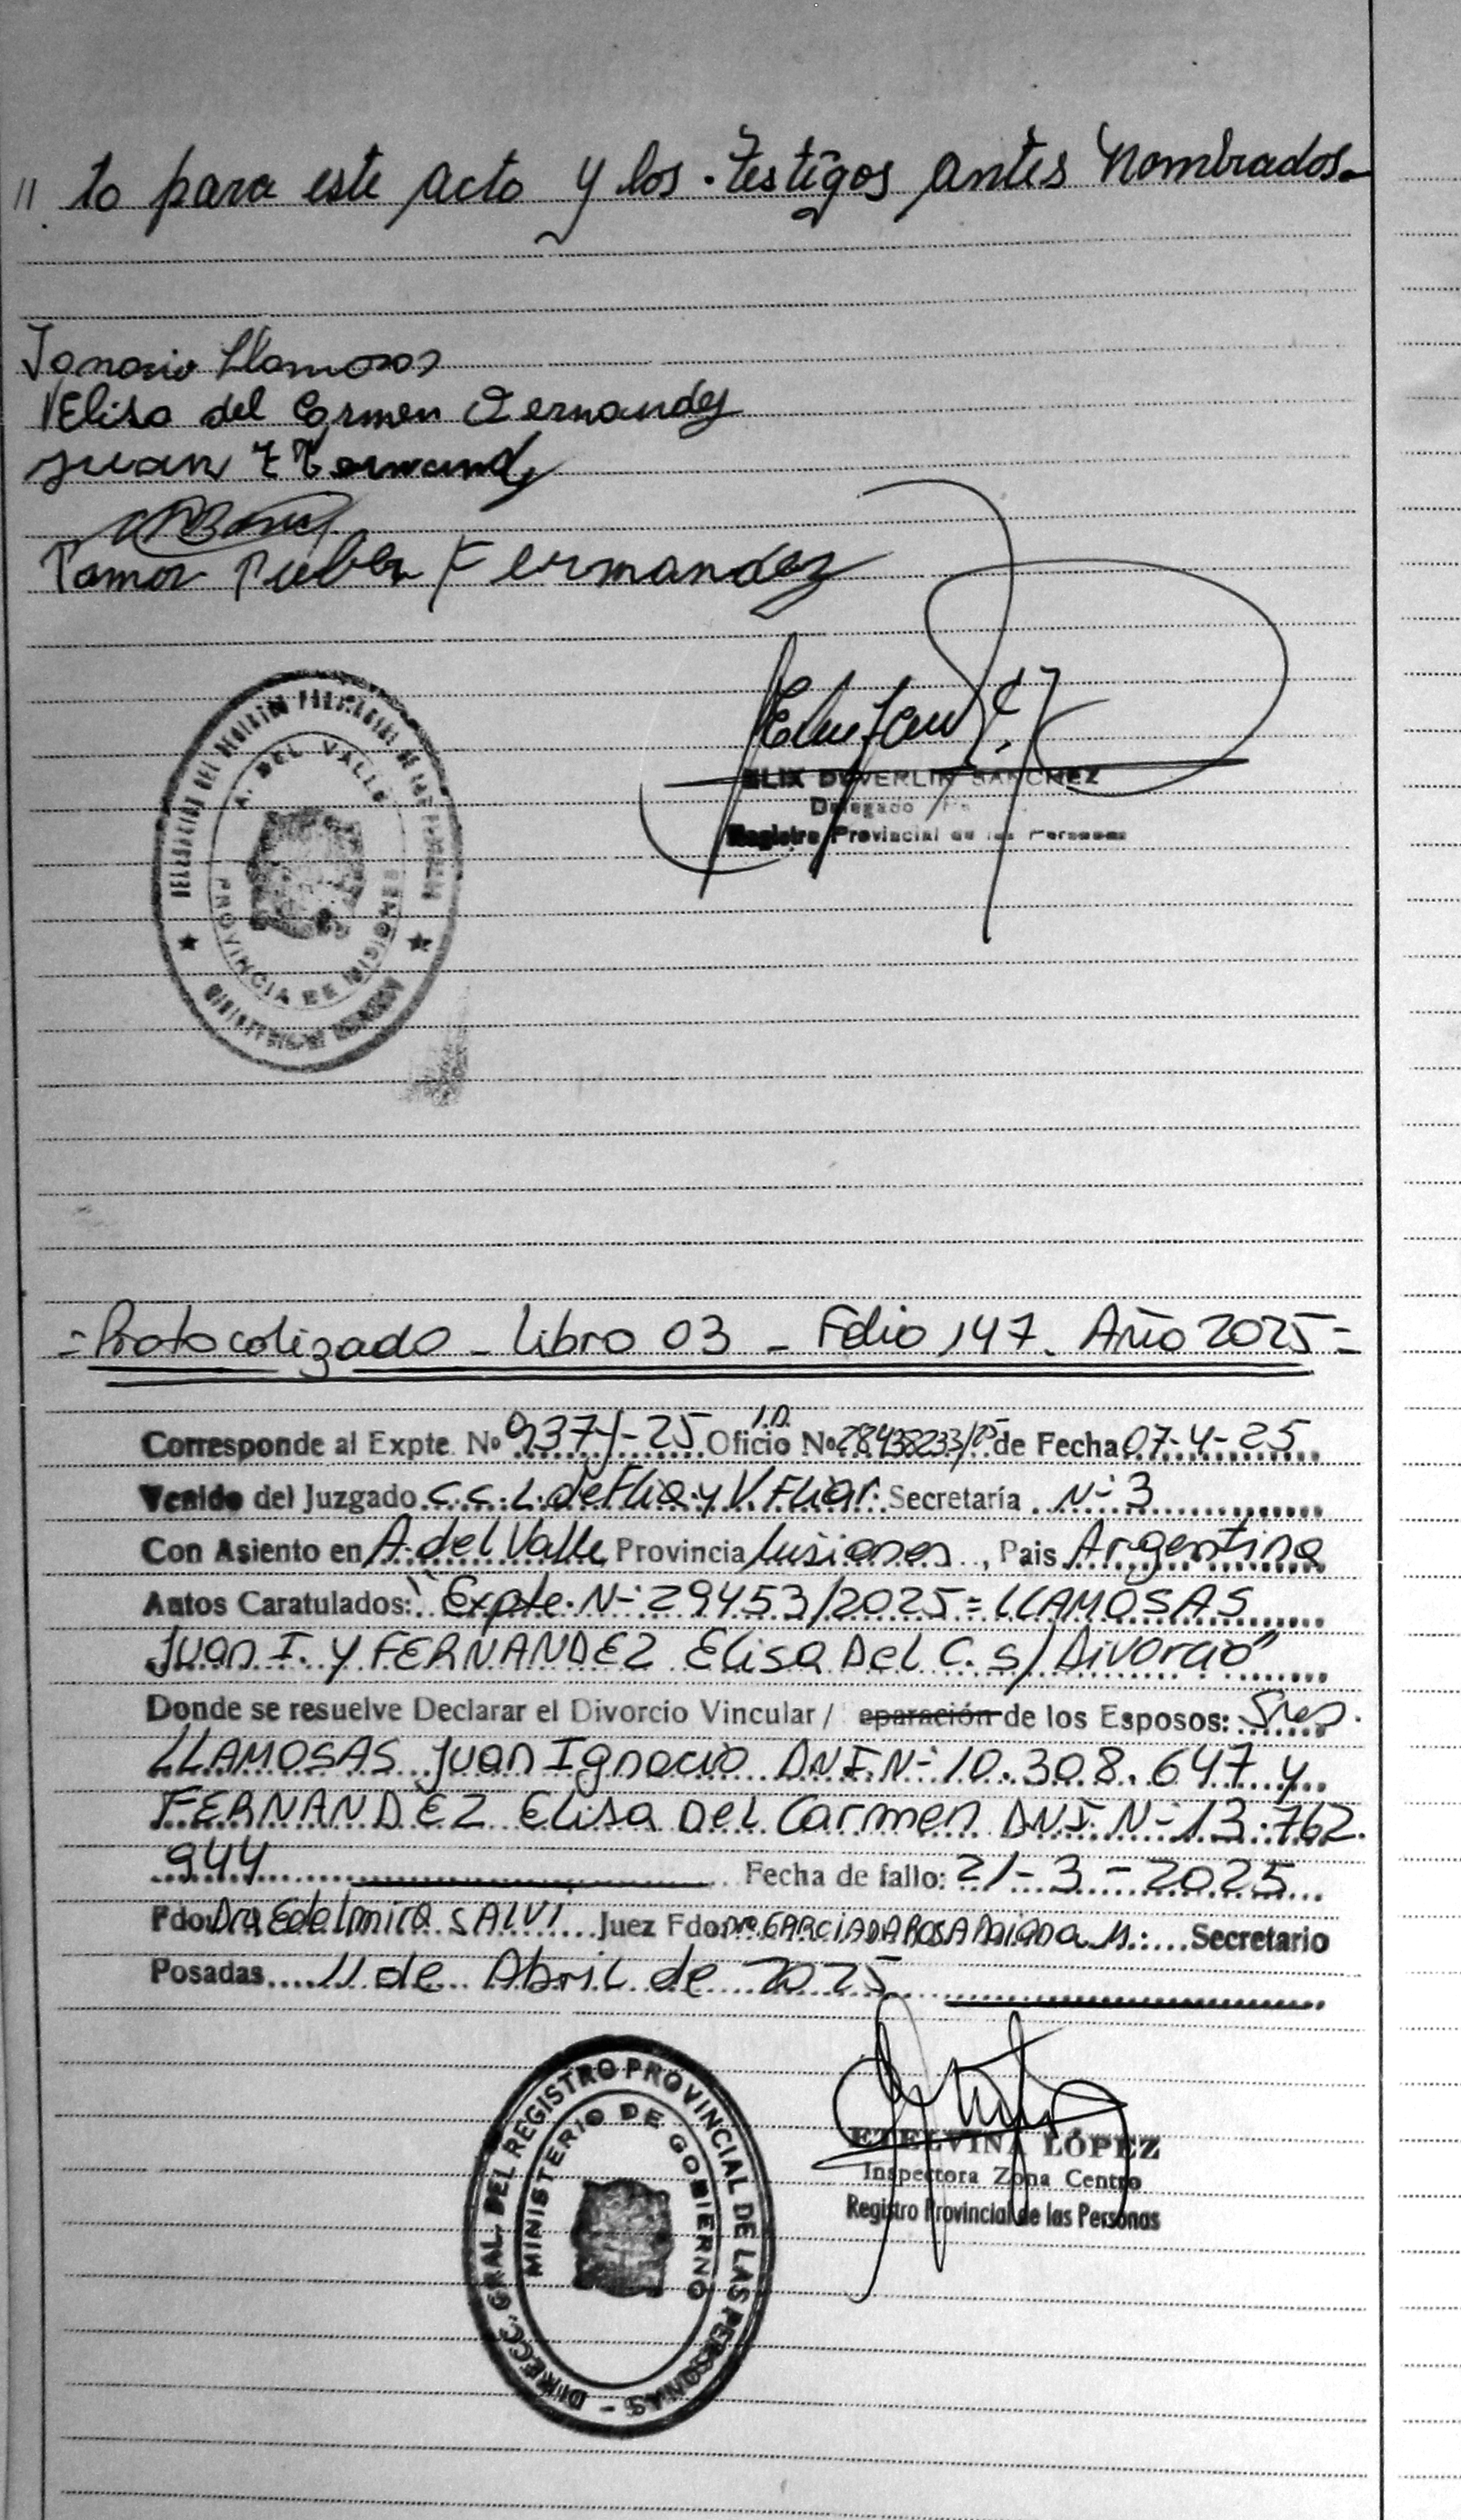 // to para este acto y los testigos antes nombrados.-
Ignacio Llamosas
Elisa del Carmen Fernandez
Juan
Fernandez
DELEGACION DEL REGISTRO PROVINCIAL DE LAS PERSONAS
A. DEL VALLE
PROVINCIA DE MISIONES
MINISTERIO DE GOBIERNO
ELIX DUVERLIN SANCHEZ
Delegado
Registro Provincial de las Personas
=Protocolizado - Libro 03 - Folio 147. Año 2025=
Corresponde al Expte. Nº 9371-25 Oficio I.D. Nº 28438233/25 de Fecha 07-4-25
Venido del Juzgado C.C.L. de Flia y V. Fliar. Secretaría Nº 3
Con Asiento en A. del Valle Provincia Misiones, Pais Argentina
Autos Caratulados: "Expte. Nº 29453/2025= LLAMOSAS
Juan I. y FERNANDEZ Elisa Del C. s/Divorcio"
Donde se resuelve Declarar el Divorcio Vincular / eparación de los Esposos: Sres.
LLAMOSAS Juan Ignacio DNI. Nº 10.308.647 y
FERNANDEZ Elisa Del Carmen DNI. Nº 13.762.
944 Fecha de fallo: 21-3-2025
Fdo: Dra Edelmira SALVI Juez Fdo: Dra GARCIA DA ROSA Daiana M.: Secretario
Posadas 11 de Abril de 2025
DIRECC. GRAL. DEL REGISTRO PROVINCIAL DE LAS PERSONAS -
MINISTERIO DE GOBIERNO
ETELVINA LÓPEZ
Inspectora Zona Centro
Registro Provincial de las Personas